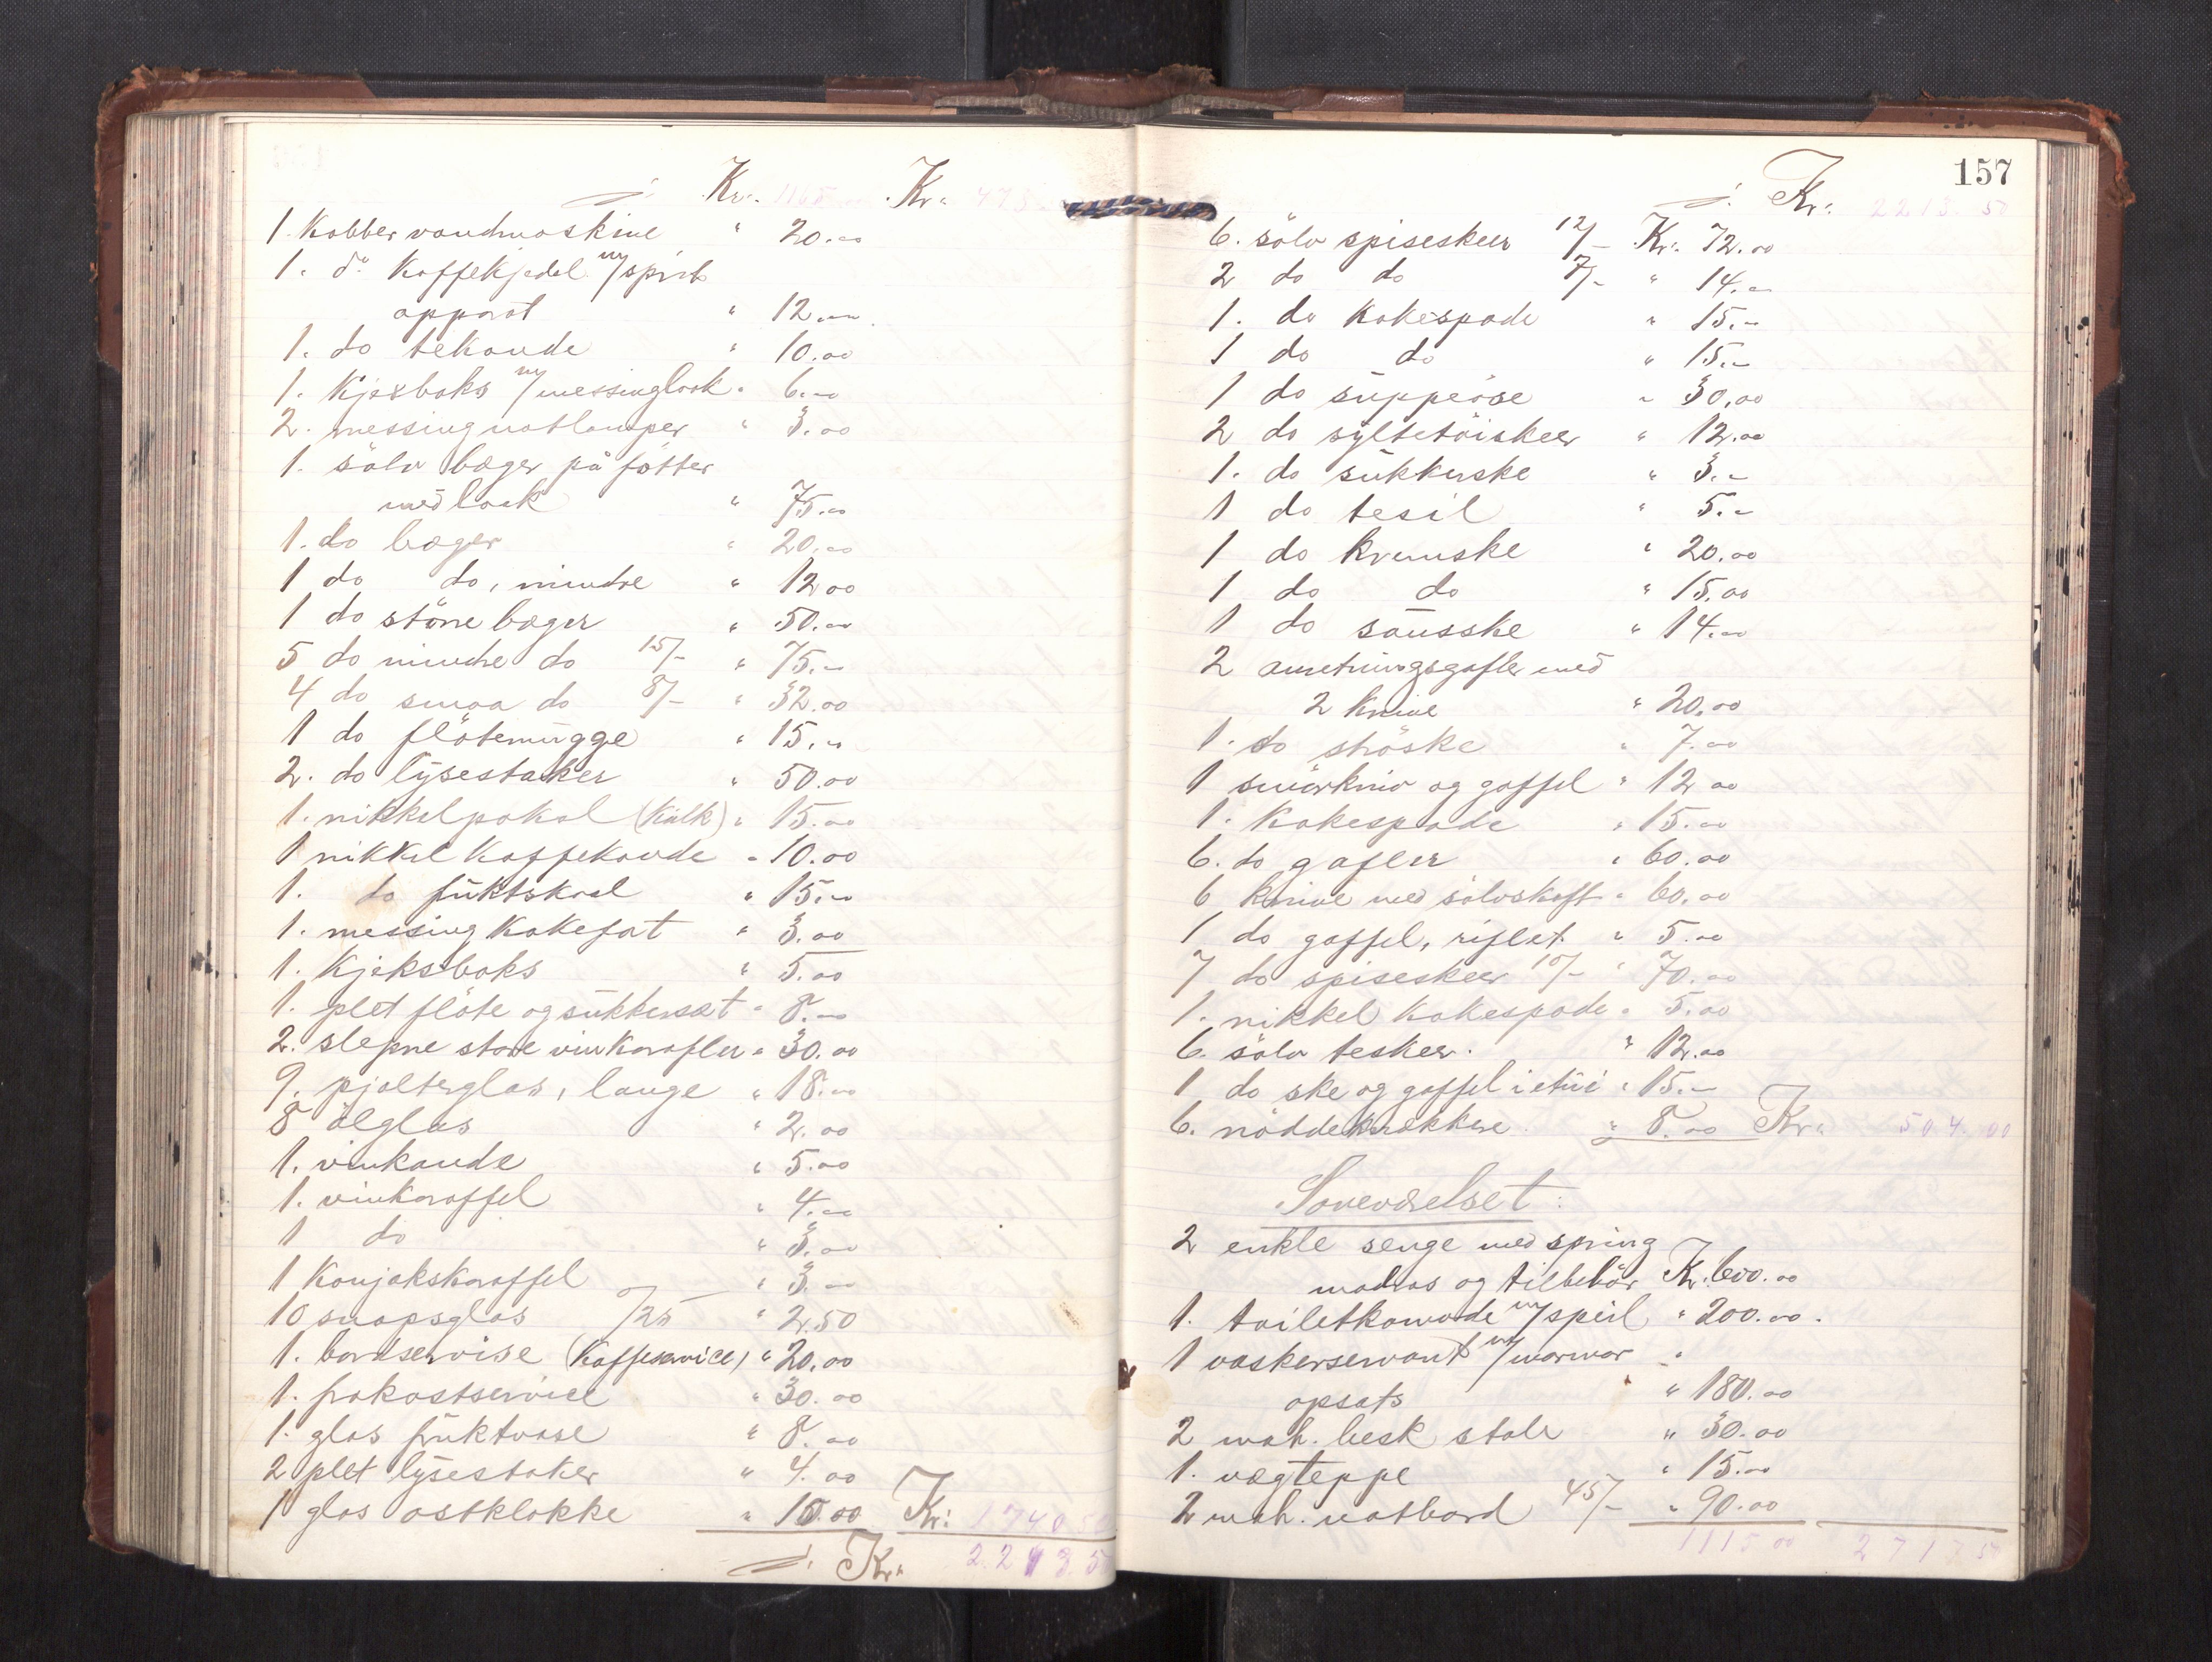 Kr. 1165 Kr. 473
1. Kobber vandmaskine " 20.00
1. do Kaffekjedel m/sprit
apparat " 12.00
1. do tekande " 10.00
1. Kjexboks m/messinglaak " 6.00
2. messing natlamper " 3.00
1. sölv bæger på fötter
med laak " 75.00
1. do bæger " 20.00
1 do do, mindre " 12 00
1 do större bæger " 50.00
5 do mindre do 15/- " 75.00
4 do smaa do 8/- " 32.00
1 do flötemugge " 15.00
2. do lysestaker " 50.00
1. nikkelpokal (Kalk) " 15.00
1 nikkel Kaffekande " 10.00
1. do fruktskaal " 15.00
1. messing Kakefat " 3.00
1. Kjeksboks " 5.00
1. plet flöte og sukkersæt " 8.00
2. slepne store vinkarafler " 30.00
9. pjolterglas, lange " 18.00
8 ölglas " 2.00
1. vinkande " 5.00
1. vinkaraffel " 4.00
1 do " 3.00
1 Konjakskaraffel " 3.00
10 snapsglas /25 " 2.50
1. bordservise (Kaffeservice) " 20.00
1. frokostservice " 30.00
1. glas fruktvase " 8.00
2 plet lysestaker " 4.00
1 glas ostklokke " 10.00 Kr: 1740 50
Kr. 2213.50
157
Kr: 2213.50
6. sölv spiseskeer 12/- Kr. 72.00
2 do do 7/- " 14.00
1. do Kakespade " 15.00
1 do do " 15.00
1 do suppeöse " 30.00
2 do syltetöiskeer " 12.00
1. do sukkerske " 3.00
1 do tesil " 5.00
1 do kremske " 20.00
1 do do " 15.00
1 do sausske " 14.00
2 anretningsgafler med
2 knive " 20.00
1. do ströske " 7.00
1 smörkniv og gaffel " 12 00
1. Kakespade " 15.00
6. do gafler " 60.00
6 knive med sölvskaft " 60.00
1 do gaffel, riflet " 5.00
7 do spiseskeer 10/- " 70.00
1. nikkel Kakespade " 5.00
6. sölv teskeer. " 12.00
1 do ske og gaffel i etui " 15.00
6. nöddeknækkere " 8.00 Kr. 504.00
Soveværelset:
2 enkle senge med spring
madras og tilbehör Kr. 600.00
1. toiletkomode m/speil " 200.00.
1 vaskerservant m/marmor
opsats " 180.00
2 mah. besk stole " 30.00
1. vægteppe " 15.00
2 mah. natbord 45/- " 90.00
1115 00 2717 50